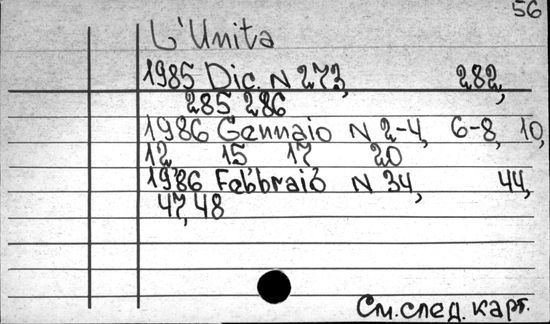 56
L'Unita
1985 Dic. N 273, 282,
285 286
1986 Gennaio N 2-4, 6-8, 10,
12 15 17 20
1986 Febbraio N 34, 44,
47, 48
См. след. карт.